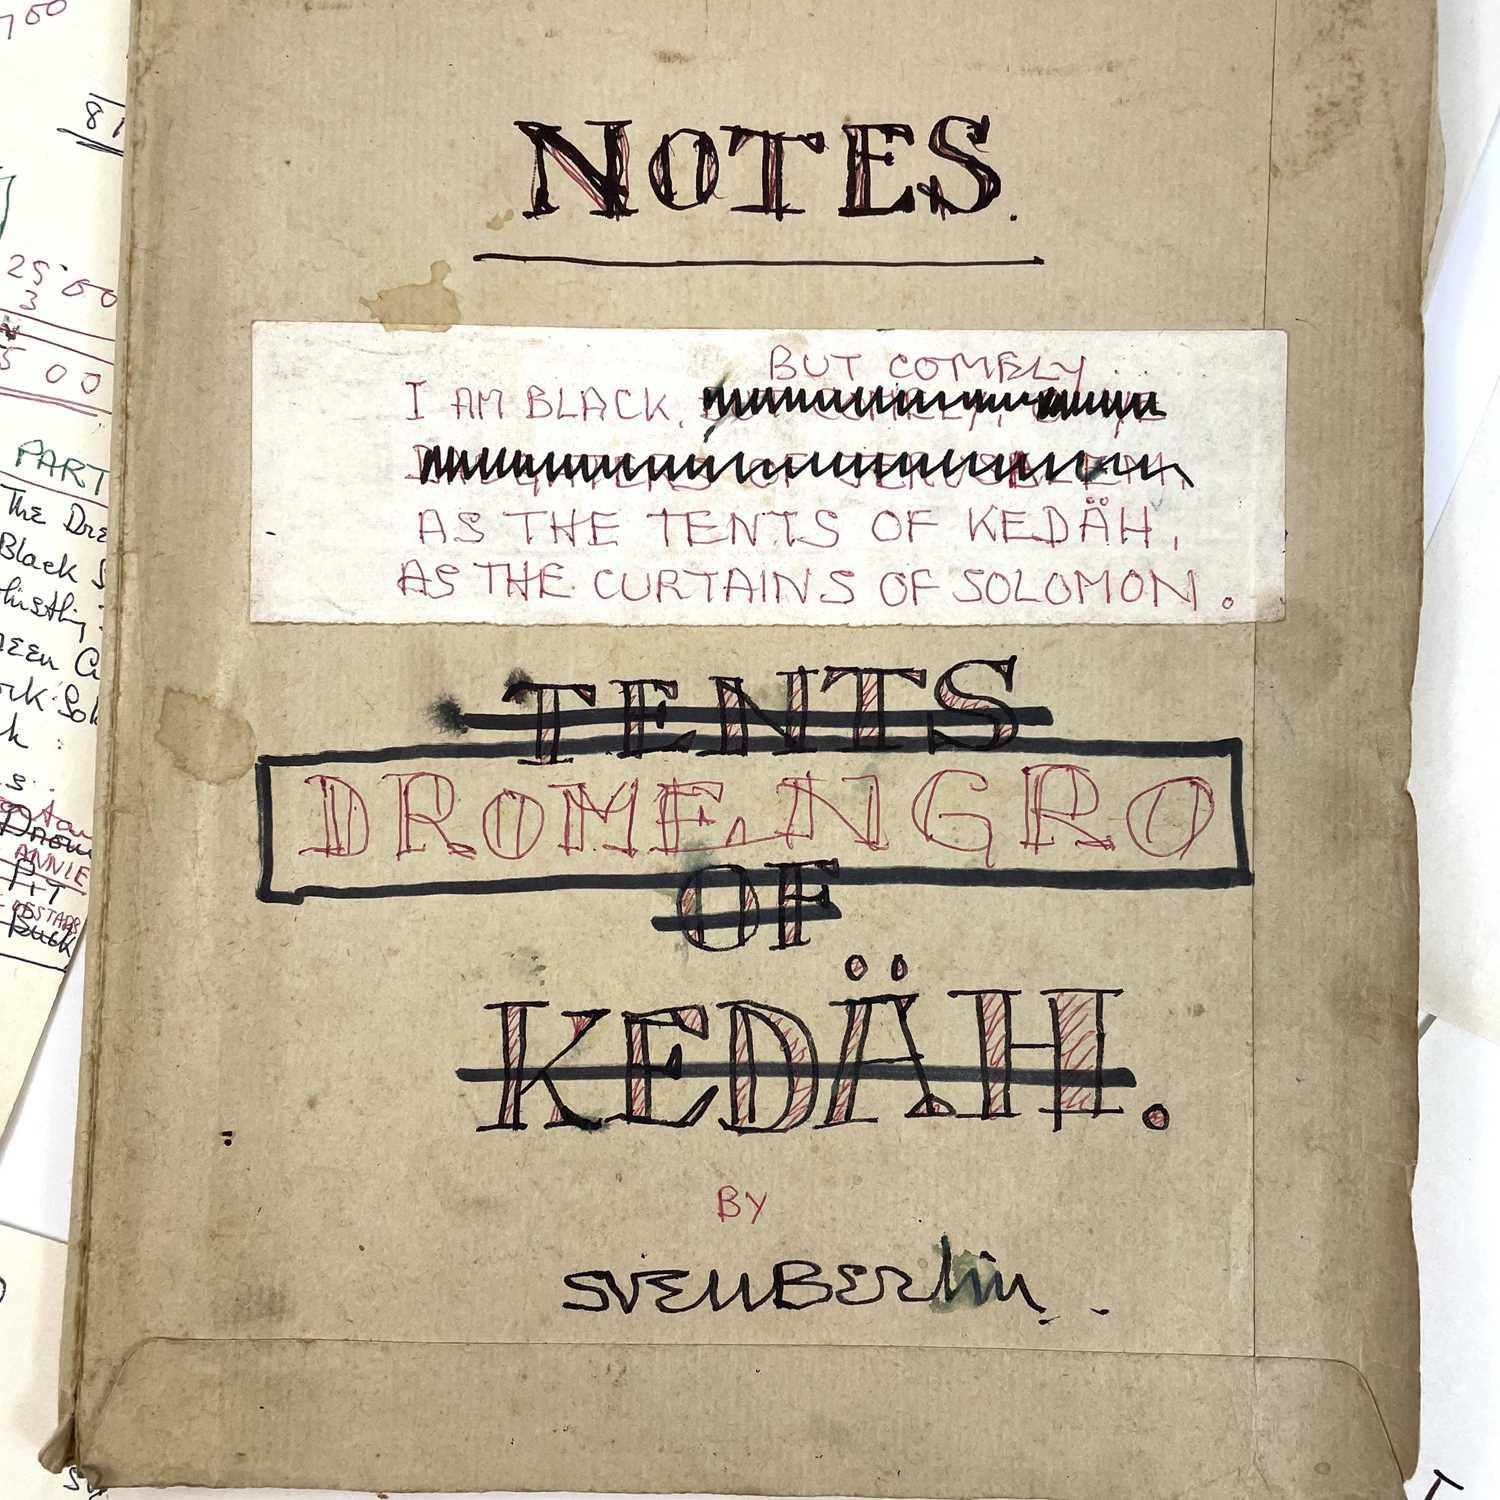 NOTES.
BUT COMELY
I AM BLACK,
AS THE TENTS OF KEDÄH,
AS THE CURTAINS OF SOLOMON.
TENTS
DROMENGRO
OF
KEDÄH.
BY
SVEN BERLIN.
81
25.00
3
500
PART
The Dre
Black S
ANNIE
Pit
Buck